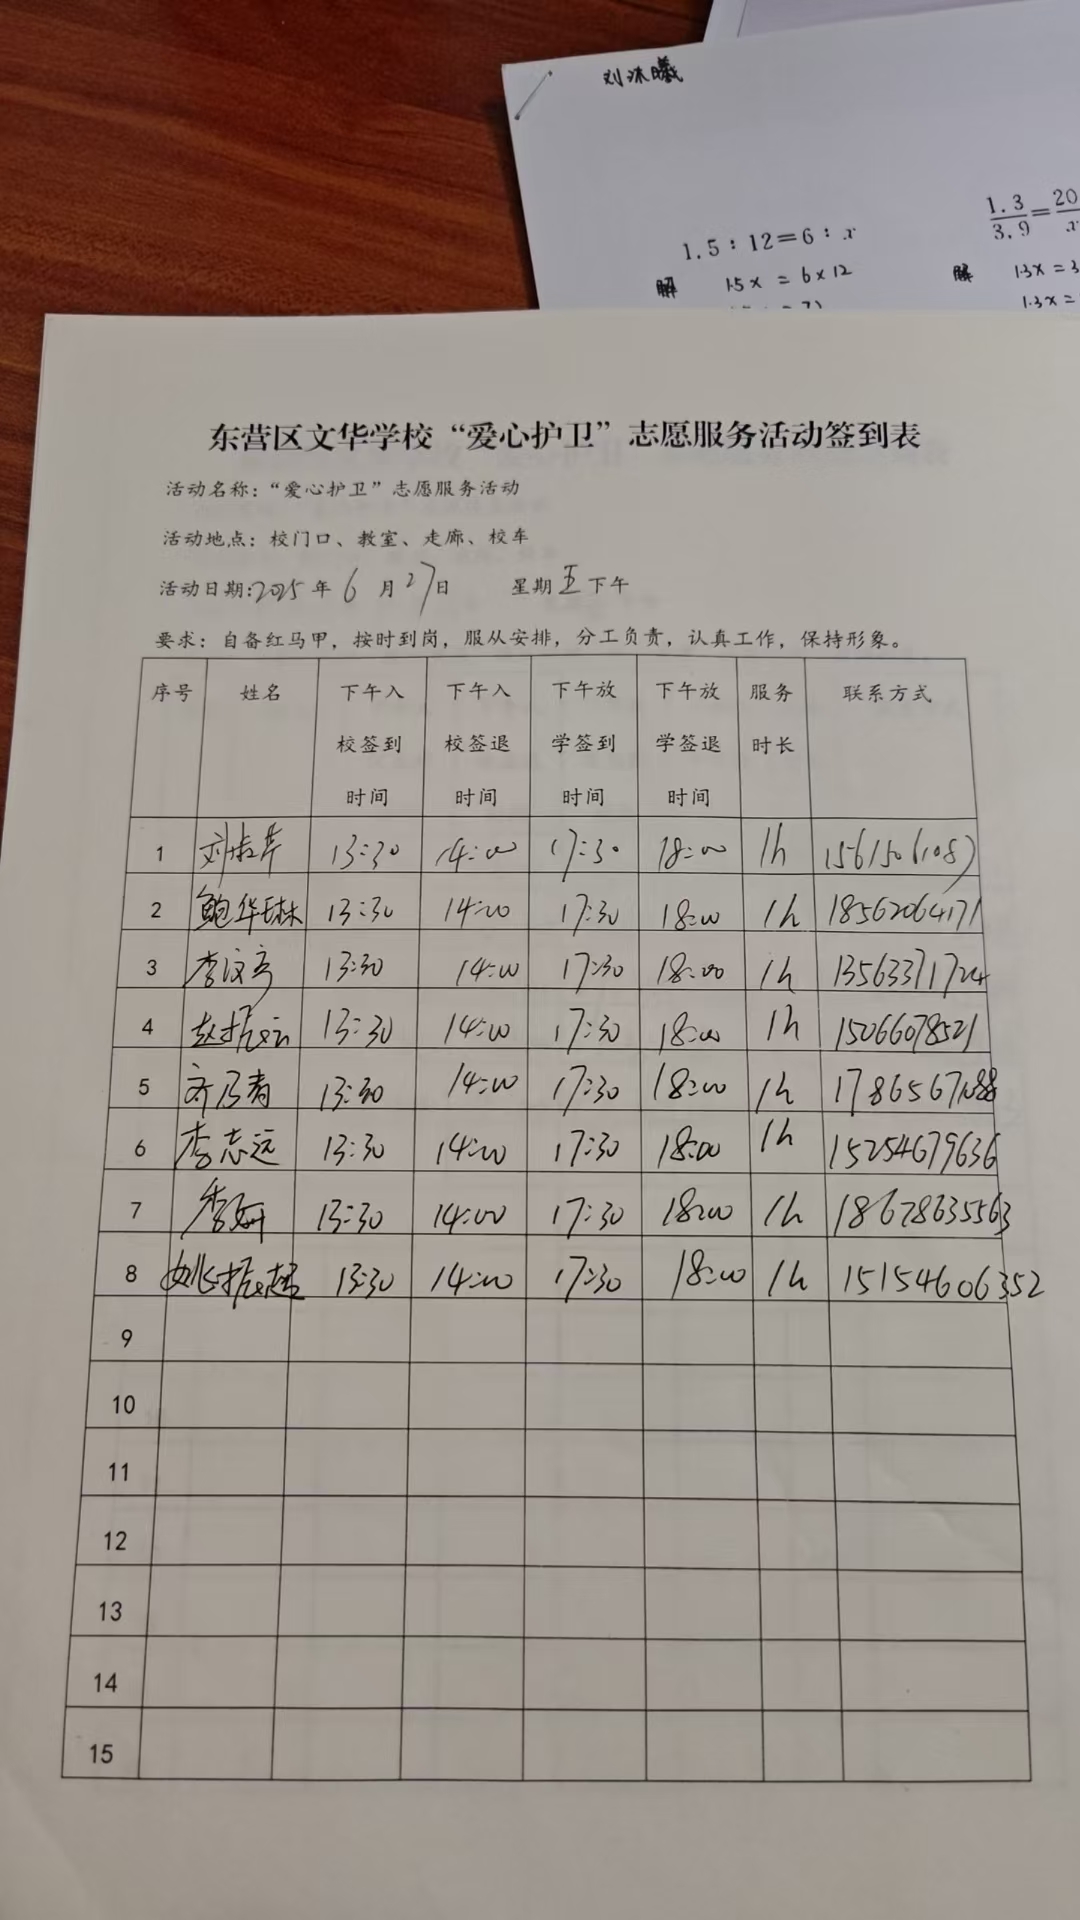 刘沐曦
1.5：12=6：x
1.3/3.9=20/x
解 1.5x = 6×12
解 1.3x = 3
1.3x =
东营区文华学校“爱心护卫”志愿服务活动签到表
活动名称：“爱心护卫”志愿服务活动
活动地点：校门口、教室、走廊、校车
活动日期：2025年6月27日 星期五下午
要求：自备红马甲，按时到岗，服从安排，分工负责，认真工作，保持形象。
序号 姓名 下午入校签到时间 下午入校签退时间 下午放学签到时间 下午放学签退时间 服务时长 联系方式
1 刘淑芹 13:30 14:00 17:30 18:00 1h 15615061087
2 鲍华琳 13:30 14:00 17:30 18:00 1h 18562064171
3 李汶亭 13:30 14:00 17:30 18:00 1h 13563371724
4 赵振云 13:30 14:00 17:30 18:00 1h 15066078521
5 齐乃青 13:30 14:00 17:30 18:00 1h 17865671088
6 李志远 13:30 14:00 17:30 18:00 1h 15254679636
7 李妍 13:30 14:00 17:30 18:00 1h 18678635563
8 姚振超 13:30 14:00 17:30 18:00 1h 15154606352
9
10
11
12
13
14
15